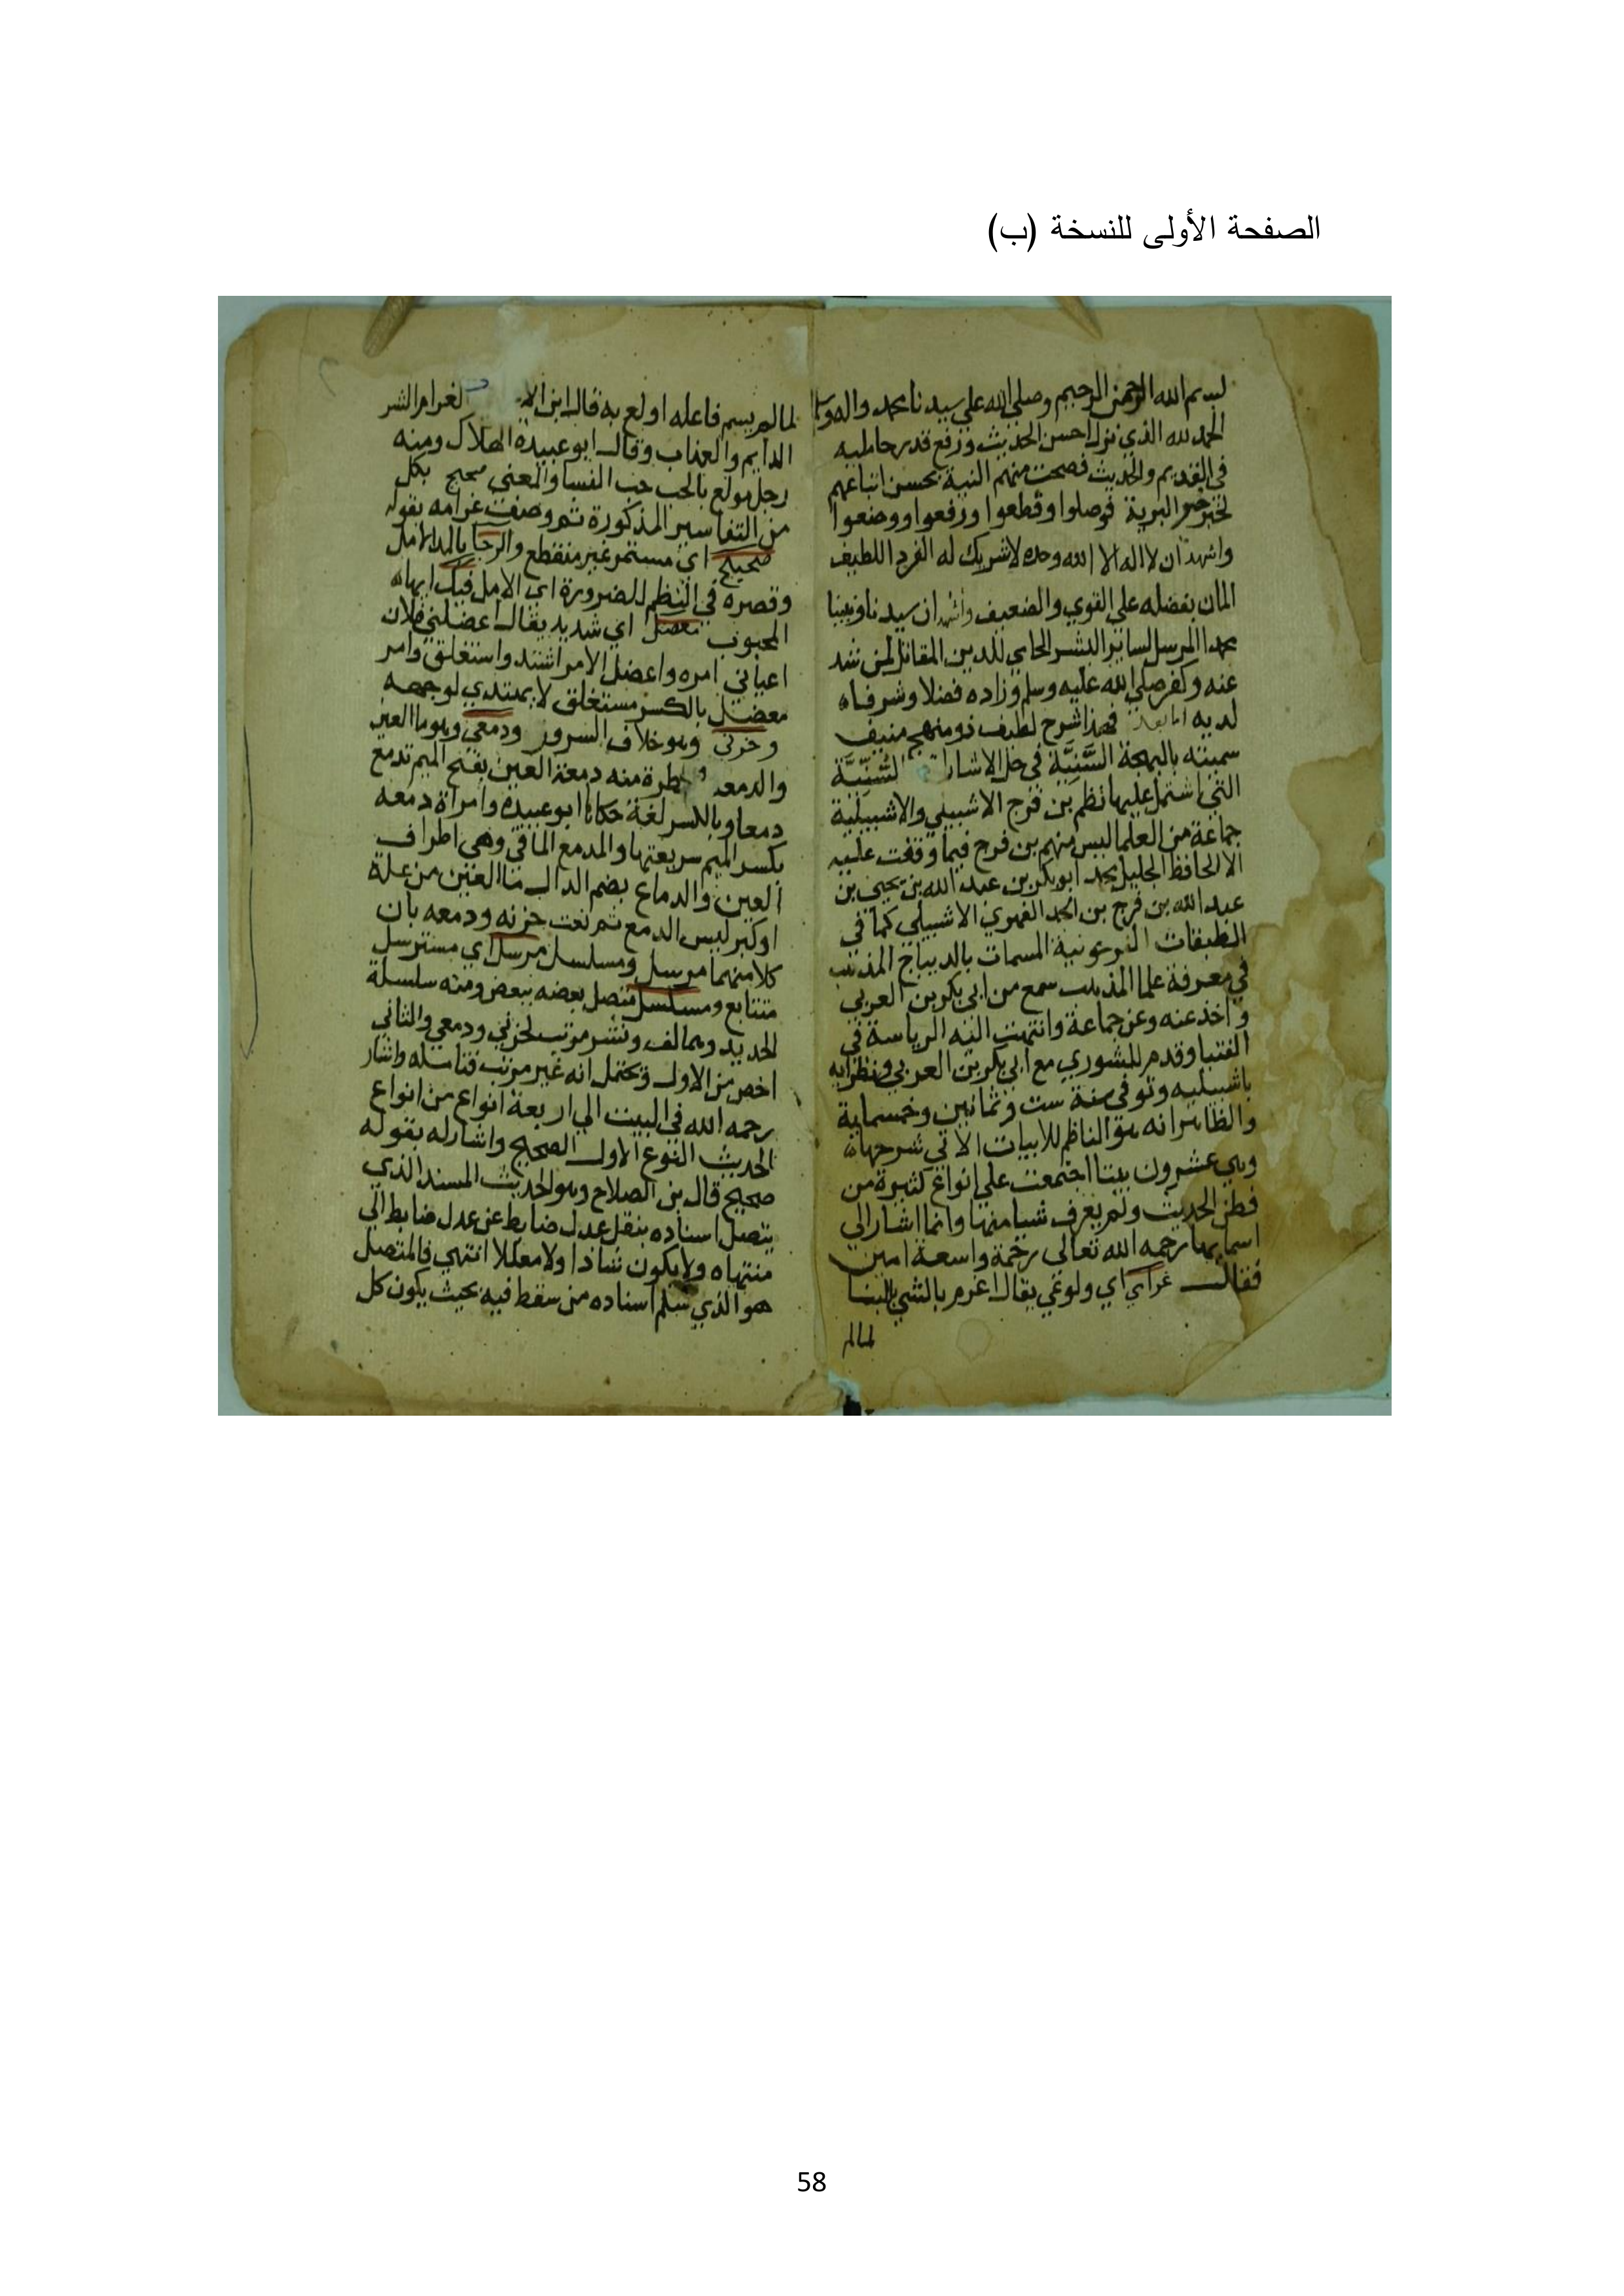 الصفحة الأولى للنسخة (ب)
بسم الله الرحمن الرحيم وصلى الله على سيدنا محمد واله وسلم
الحمد لله الذي نزل احسن الحديث ورفع قدر حامليه
في القديم والحديث فصحت منهم النية بحسن اتباعهم
لخير البرية فوصلوا وقطعوا ورفعوا ووضعوا
واشهد ان لا اله الا الله وحده لا شريك له الفرد اللطيف
المان بفضله على القوي والضعيف واشهد ان سيدنا ونبينا
محمدا المرسل لساير البشر الحامي للدين المقاتل لمن شد
عنه وكفر صلى الله عليه وسلم وزاده فضلا وشرفاه
لديه اما بعد فهذا شرح لطيف ذو منهج منيف
سميته بالبهجة السَّنِيَّة في حل الاشارات السُّنِّيَّة
التي اشتمل عليها نظم بن فرج الاشبيلي والاشبيلية
جماعة من العلما ليس منهم بن فرج فيما وقفت عليه
الا الحافظ الجليل محمد ابو بكر بن عبد الله بن يحيى بن
عبد الله بن فرج بن الجد الفهوي الاشبيلي كما في
الطبقات الفرحونية المسمات بالديباج المذهب
في معرفة علما المذهب سمع من ابي بكر بن العربي
واخذ عنه وعن جماعة وانتهت اليه الرياسة في
الفتيا وقدم للشوري مع ابي بكر بن العربي ونظرايه
باشبيليه وتوفي سنة ست وثمانين وخمسماية
والظاهر انه هو الناظم للابيات الاتي شرحها
وهي عشرون بيتا اجتمعت على انواع كثيرة من
فطن الحديث ولم يعرف شيا منها وانما اشار الي
اسمايها رحمه الله تعالى رحمة واسعة امين
فقال غرامي اي ولوعي يقال اغرم بالشي بالبنا
لما لم
لما لم يسم فاعله اولع به قال ابن الغرام الشر
الدايم والعذاب وقال ابو عبيدة الهلاك ومنه
رجل مولع بالحب حب النسا والمعنى صحيح بكل
من التفاسير المذكورة ثم وصف غرامه بقوله
صحيح اي مستمر غير منقطع والرجا بالمد الامل
وقصره في النظم للضرورة اي الامل فيك ايها
المحبوب معضل اي شديد يقال اعضلني فلان
اعياني امره واعضل الامر اشتد واستغلق وامر
معضل بالكسر مستغلق لا يهتدي لوجهه
وحزني وهو خلاف السرور ودمعي وهو ما العين
والدمعة قطرة منه دمعة العين بفتح الميم تدمع
دمعا وبالكسر لغة حكاها ابو عبيدة وامراة دمعه
بكسر الميم سريعتها والمدمع الماقي وهي اطراف
العين والدماع بضم الدال ما العين من علة
او كبر ليس الدمع ثم نعت حزنه ودمعه بان
كلا منهما مرسل ومسلسل مرسل اي مسترسل
متتابع ومسلسل متصل بعضه ببعض ومنه سلسلة
الحديد وهما لف ونشر مرتب لحزني ودمعي والثاني
اخص من الاول ويحتمل انه غير مرتب فتامله واشار
رحمه الله في البيت الي اربعة انواع من انواع
الحديث النوع الاول الصحيح واشار له بقوله
صحيح قال بن الصلاح وهو الحديث المسند الذي
يتصل اسناده بنقل عدل ضابط عن عدل ضابط الي
منتهاه ولا يكون شاذا ولا معللا انتهي فالمتصل
هو الذي سلم اسناده من سقط فيه بحيث يكون كل
58